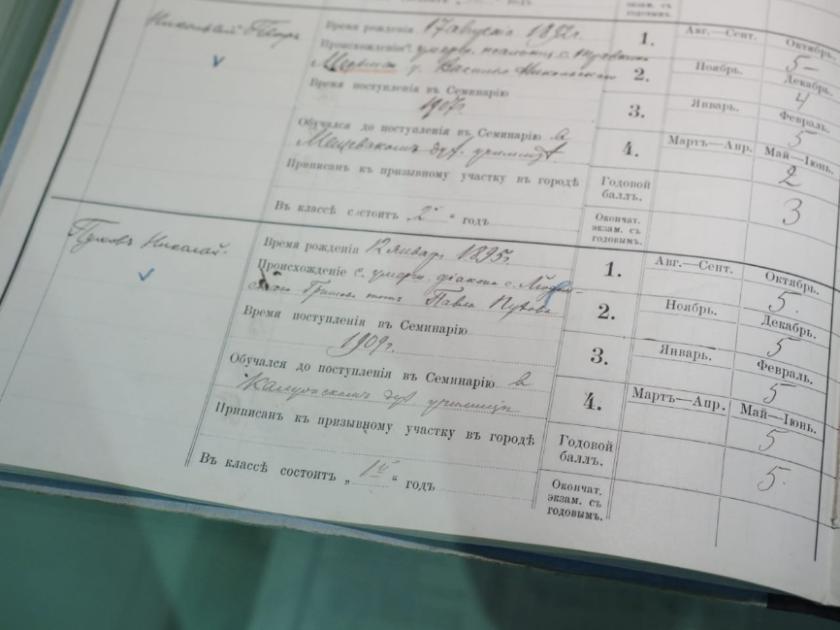 экзам. съ
годовымъ.
Никольскій Петръ
Время рожденія 17 августа 1892 г.
Происхожденіе умерш. псаломщ. с.
г. Василія Никольскаго
Время поступленія въ Семинарію
1907 г.
Обучался до поступленія въ Семинарію в
Мещевскомъ дух. училищѣ
Приписанъ къ призывному участку въ городѣ
Въ классѣ состоитъ „2й“ годъ
1. Авг.—Сент. Октябрь.
5-
2. Ноябрь. Декабрь.
4
3. Январь. Февраль.
5
4. Мартъ—Апр. Май—Іюнь.
2
Годовой
баллъ.
3
Окончат.
экзам. съ
годовымъ.
Пуховъ Николай.
Время рожденія 12 января 1895 г.
Происхожденіе с. умерш. діакона с.
Павла Пухова
Время поступленія въ Семинарію
1909 г.
Обучался до поступленія въ Семинарію в
Калужскомъ дух. училищѣ
Приписанъ къ призывному участку въ городѣ
Въ классѣ состоитъ „1й“ годъ
1. Авг.—Сент. Октябрь.
5.
2. Ноябрь. Декабрь.
5
3. Январь. Февраль.
5
4. Мартъ—Апр. Май—Іюнь.
5
Годовой
баллъ.
5.
Окончат.
экзам. съ
годовымъ.